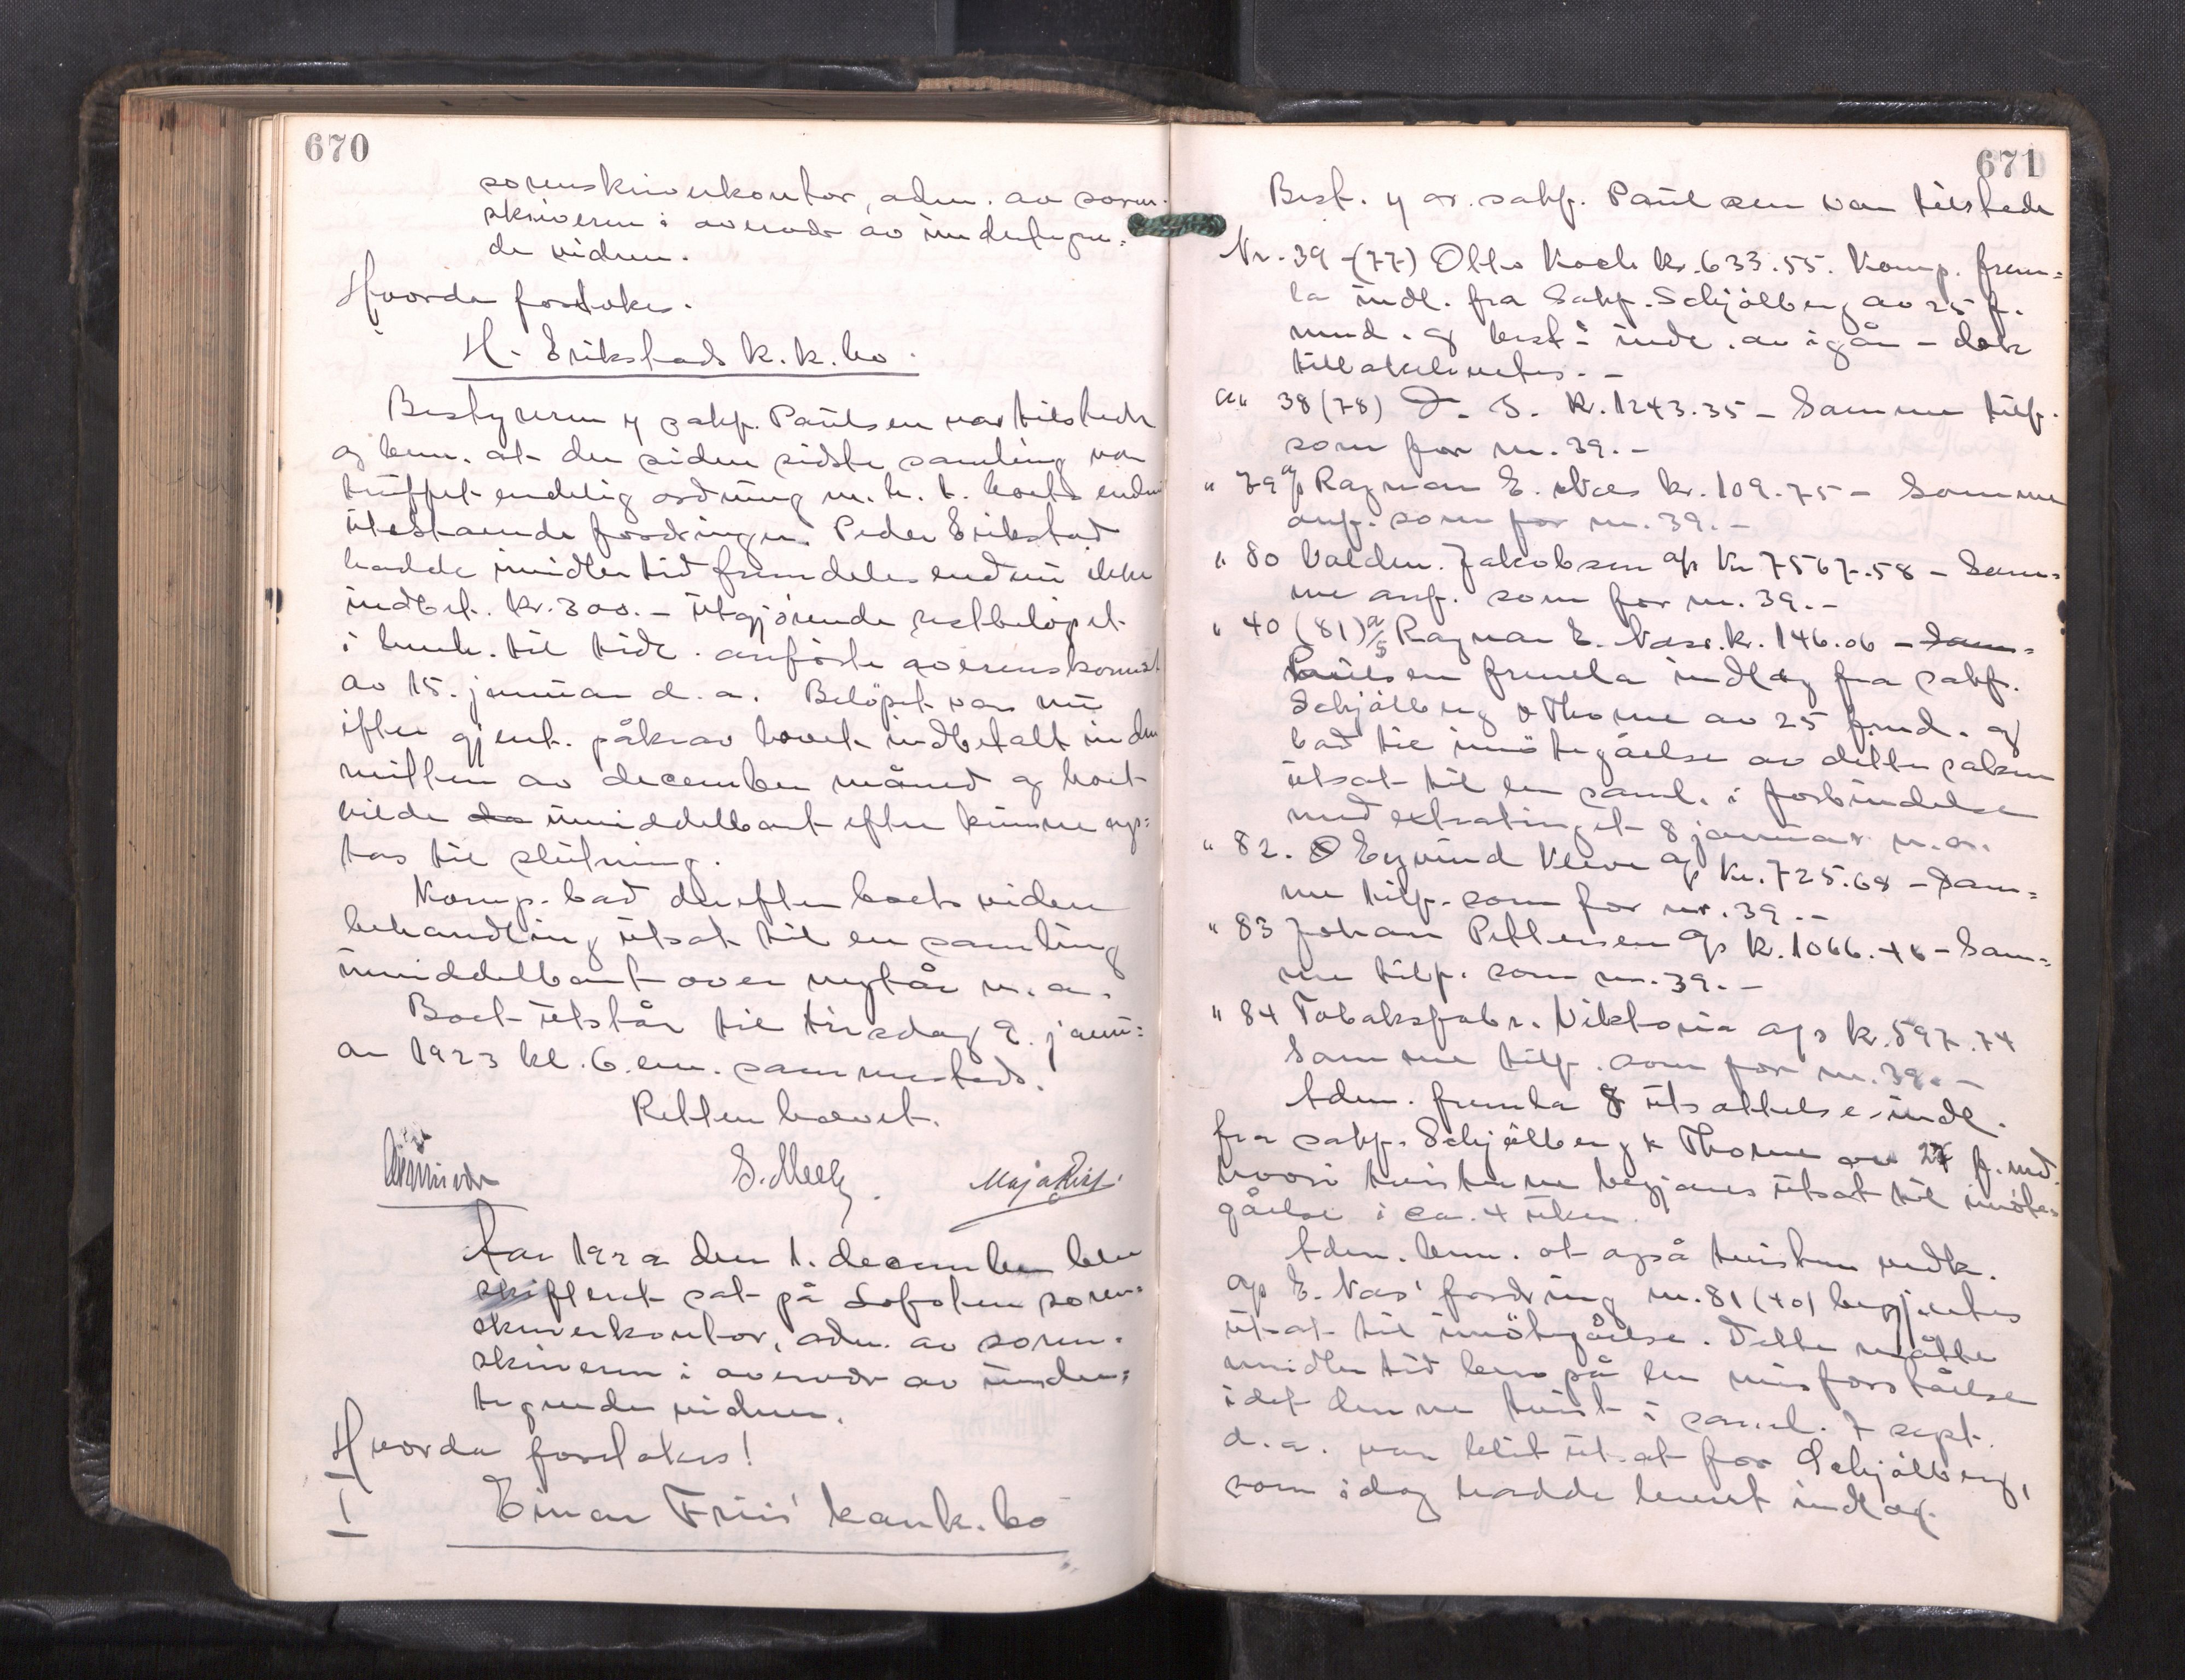 670
sorenskriverkontor, adm. av soren-
skriveren i overvær av undertegne=
de vidner.
Hvorda foretokes.
H. Erikstads k.k. bo.
Bestyreren ɣ sakf. Paulsen var tilstede
og bem. at der siden sidste samling var
truffet endelig ordning m.h.t. boets endnu
utestaaende fordringer. Peder Erikstad
hadde imidlertid fremdeles endnu ikke
indbet. kr. 300.- utgjørende restbeløpet
i henh. til tidl. anførte overenskomst
av 15. januar d.a. Beløpet var nu
efter gjent. påkrav lovet indbetalt inden
midten av december måned og boet
vilde umiddelbart efter kunne op=
tas til slutning.
Komp. bad derefter boets videre
behandling utsat til en samling
umiddelbart over nytår n.a.
Boet utstår til tirsdag 9. janu=
ar 1923 kl. 6 em. sammesteds.
Retten hævet.
S. Meely. Maja Riis
Aar 1922 den 1. december blev
skifterett sat på Lofoten soren=
skriverkontor, adm. av soren-
skriveren i overvær av under=
tegnede vidner.
Hvorda foretokes!
I Einar Friis' konk. bo
671
Best. ɣ or. sakf. Paulsen var tilstede
Nr. 39-(77) Otto Koch kr. 633.55. Komp. frem=
la indl. fra Sakf. Schjølberg av 25 f.
mnd. og best: indl. av igår - dok
tilbakelevertes. -
" 38 (78) D. S. kr. 1243.35 - Samme tilf.
som for nr. 39. -
" 79 a/s Ragnar E. Næs kr. 109.75 - Samme
anf. som for nr. 39. -
" 80 Valdem. Jakobsen a/s kr 7567.58 - Sam=
me anf. som for nr. 39. -
" 40 (81) a/s Ragnar E. Næss. kr. 146.06 - Sam=
Paulsen fremla indlæg fra sakf.
Schjølberg & Thorne av 25 f.md. og
bad til imøtegåelse av dette saken
utsat til en saml. i forbindelse
med extratinget 8 januar n.a.
" 82. Eyvind Kleve a/s kr. 725.68 - Sam=
me tilf. som for nr. 39. -
" 83 Johan Pettersen a/s kr. 1066.46 - Sam=
me tilf. som nr. 39. -
" 84 Tobaksfabr. Viktoria a/s kr. 597.74
Samme tilf. som for nr. 39. -
Adm. fremla 8 utsættelsesindl.
fra sakf. Schjølberg & Thorne av 27 f.md.
hvori tvisterne begjæres utsat til imøte=
gåelse i ca. 4 uker.
Adm. bem. at også tvisten vedk.
a/s E. Næs' fordring nr. 81 (40) begjærtes
utsat til imøtegåelse. Dette måtte
imidlertid bero på en misforståelse
idet denne tvist i saml. 7 sept.
d.a. var blit utsat for Schjølberg,
som idag hadde levert indlæg.